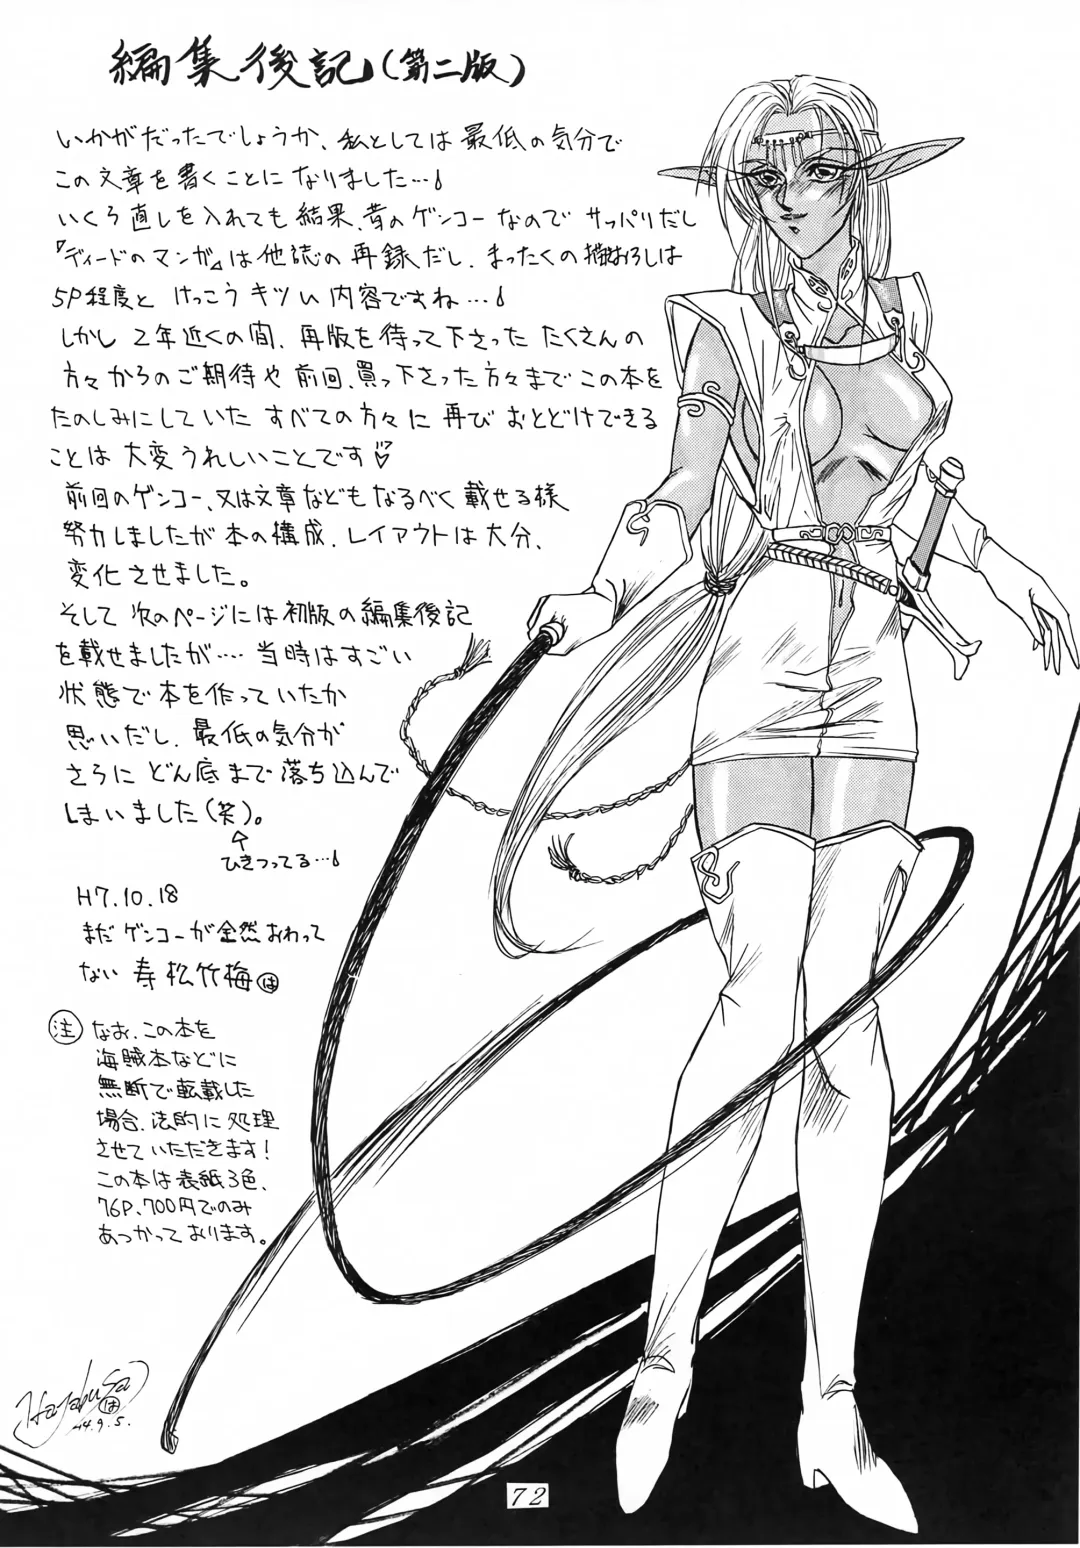 編集後記(第二版)
いかがだったでしょうか、私としては最低の気分で
この文章を書くことになりました…
いくら直しを入れても結果、昔のゲンコーなのでサッパリだし
『ディードのマンガ』は他誌の再録だし、まったくの描きおろしは
5P程度とけっこうキツい内容ですね…
しかし2年近くの間、再版を待って下さったたくさんの
方々からのご期待や前回、買っ下さった方々までこの本を
たのしみにしていたすべての方々に再びおとどけできる
ことは大変うれしいことです♡
前回のゲンコー、又は文章などもなるべく載せる様
努力しましたが本の構成、レイアウトは大分、
変化させました。
そして次のページには初版の編集後記
を載せましたが…. 当時はすごい
状態で本を作っていたか
思いだし、最低の気分が
さらにどん底まで落ち込んで
しまいました(笑)。
↑
ひきつってる…
H7.10.18
まだゲンコーが全然おわって
ない 寿松竹梅は
注 なお、この本を
海賊本などに
無断で転載した
場合、法的に処理
させていただきます!
この本は表紙3色、
76P、700円でのみ
あつかっております。
HayabuSa
は
'94.9.5.
72